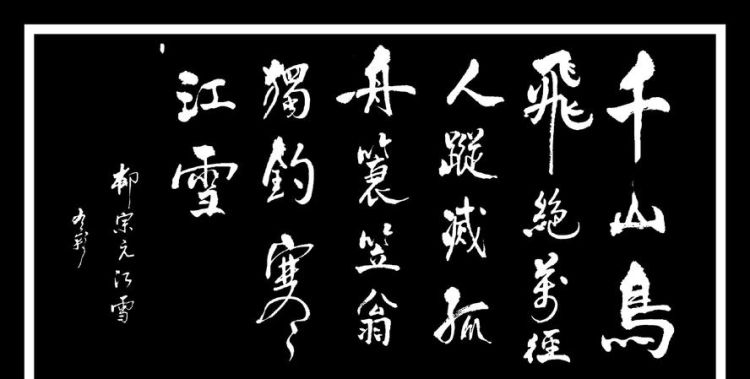 千山鳥
飛絶萬徑
人蹤滅孤
舟蓑笠翁
獨釣寒
江雪
柳宗元江雪